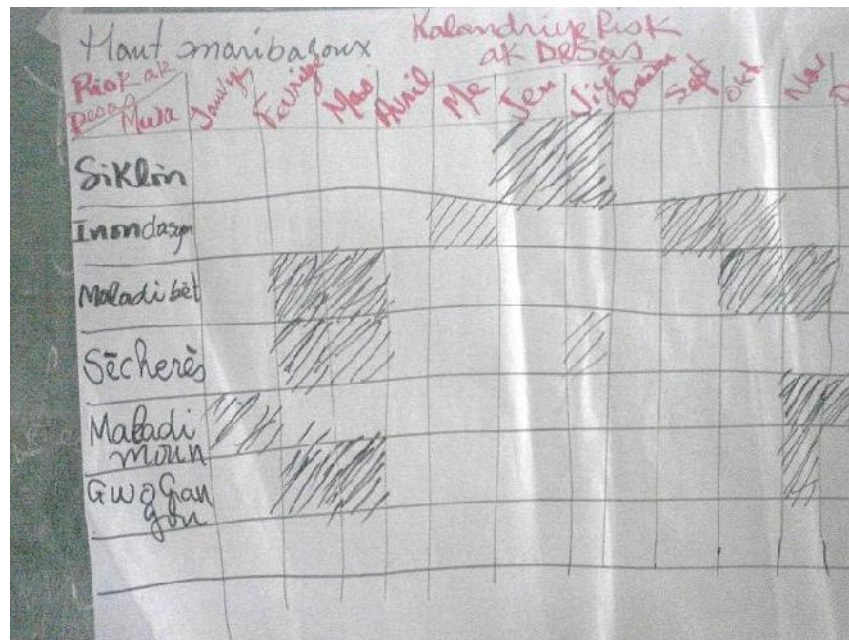 Haut maribaroux
Kalandriye Risk
ak Desas
Risk ak
Desas Mwa Janvye Fevriye Mas Avril Me Jen Jiye Sept Okt Nov D
Siklòn
Inondasyon
Maladi bèt
Sècherès
Maladi
moun
Gwo Gran
gou